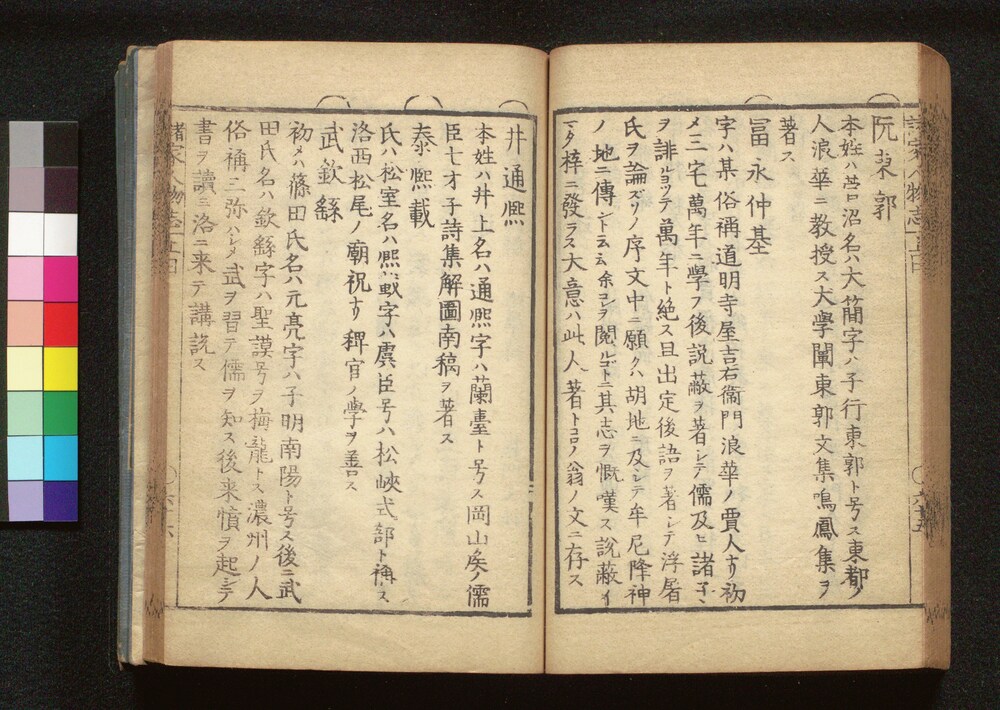 阮東郭
本姓ハ菅沼名ハ大簡字ハ子行東郭ト号ス東都ノ
人浪華ニ教授ス大學闡東郭文集鳴鳳集ヲ
著ス
冨永仲基
字ハ某俗稱道明寺屋吉右衞門浪華ノ賈人ナリ初
メ三宅萬年ニ學フ後説蔽ヲ著シテ儒及ヒ諸子ヲ
ヲ誹ルヨツテ萬年ト絶ス且出定後語ヲ著シテ浮屠
氏ヲ論ズソノ序文中ニ願クハ胡地ニ及シテ牟尼降神
ノ地ニ傳ント云云余コレヲ閲ルゴトニ其志ヲ慨嘆ス説蔽イ
マタ梓ニ發ラス大意ハ此人ノ著トコロノ翁ノ文ニ存ス
井通熈
本姓ハ井上名ハ通熈字ハ蘭臺ト号ス岡山矦ノ儒
臣七才子詩集解圖南稿ヲ著ス
秦熈載
氏ハ松室名ハ熈載字ハ虞臣号ハ松峽式部ト稱ス
洛西松尾ノ廟祝ナリ稗官ノ學ヲ善ス
武欽繇
初メハ篠田氏名ハ元亮字ハ子明南陽ト号ス後ニ武
田氏名ハ欽繇字ハ聖謨号ヲ梅龍トス濃州ノ人
俗稱三弥ハシメ武ヲ習テ儒ヲ知ス後来憤ヲ起シテ
書ヲ讀ミ洛ニ来テ講説ス
諸家人物志